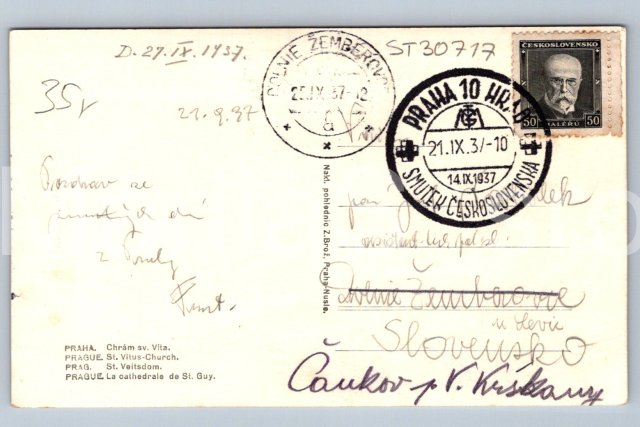 D. 27.IX.1937.
ST30717
ČESKOSLOVENSKO
50 HALÉŘŮ 50
35,
21.9.37
DOLNIE ŽEMBEROVCE
25.IX.37-12
&
PRAHA 10 HRAD
21.IX.37-10
14.IX.1937
SMUTEK ČESKOSLOVENSKA
Pozdrav ze
smutných dní
z Prahy
pan
Dolnie Žemberovce
u Levic
Slovensko
Čankov p. V. Krškany
Nakl. pohlednic Z. Brož, Praha-Nusle.
PRAHA. Chrám sv. Víta.
PRAGUE. St. Vitus-Church.
PRAG. St. Veitsdom.
PRAGUE. La cathedrale de St. Guy.